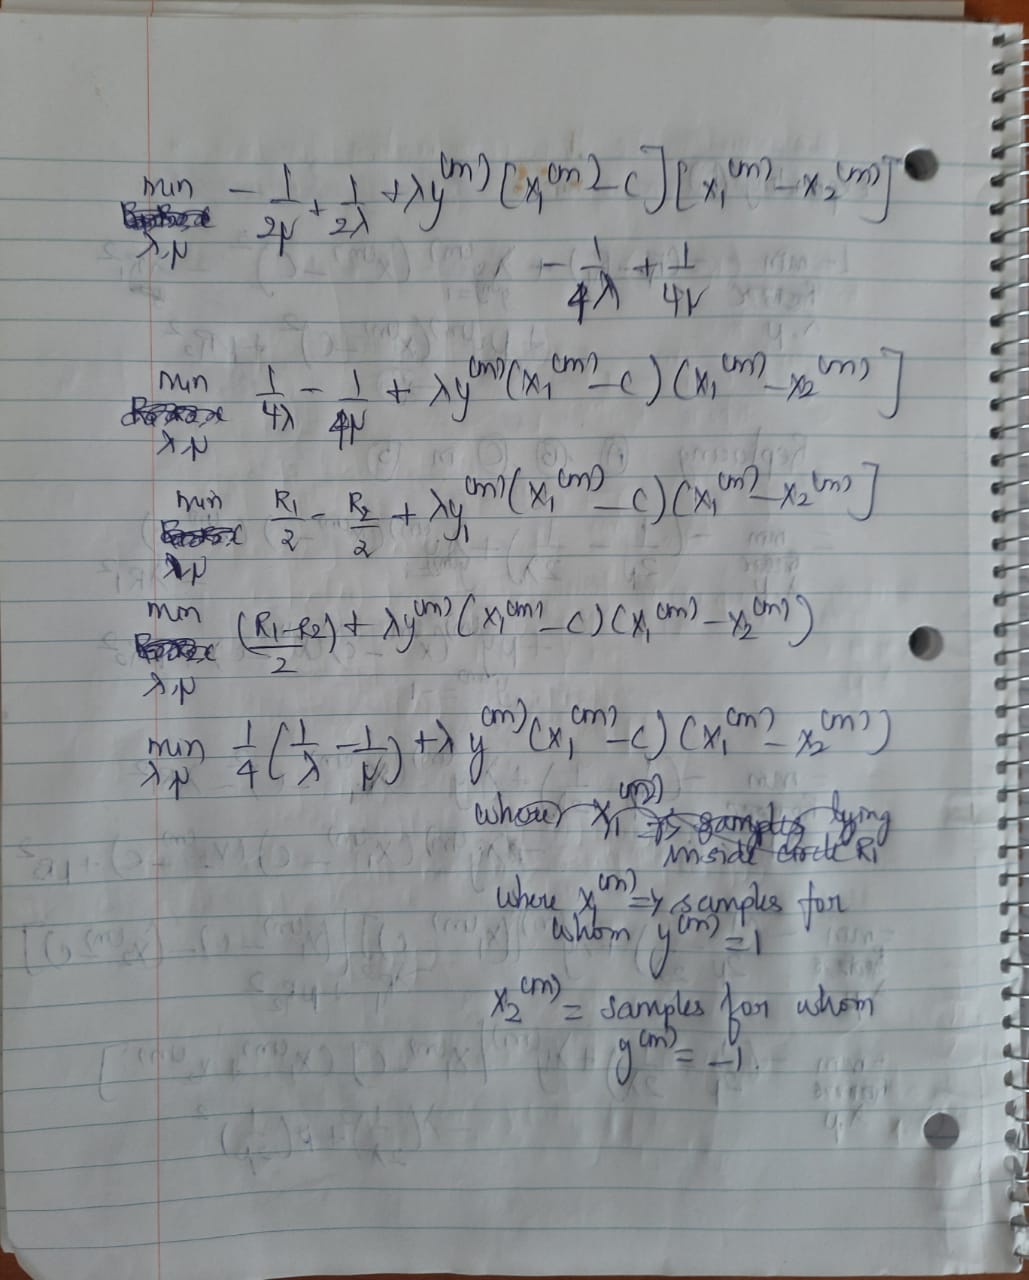 min − 1/2μ + 1/2λ + λy^(m) [x₁^(m) − c] [x₁^(m) − x₂^(m)]
λ,μ
− 1/4λ + 1/4μ
min 1/4λ − 1/4μ + λy^(m) (x₁^(m) − c) (x₁^(m) − x₂^(m)]
λ,μ
min R₁/2 − R₂/2 + λy₁^(m) (x₁^(m) − c) (x₁^(m) − x₂^(m)]
λ,μ
min (R₁−R₂)/2 + λy^(m) (x₁^(m) − c) (x₁^(m) − x₂^(m))
λ,μ
min 1/4 (1/λ − 1/μ) + λ y^(m) (x₁^(m) − c) (x₁^(m) − x₂^(m))
λ,μ
where x₁^(m) => samples lying
inside circle R₁
where x₁^(m) => samples for
whom y^(m) = 1
x₂^(m) = samples for whom
y^(m) = −1.